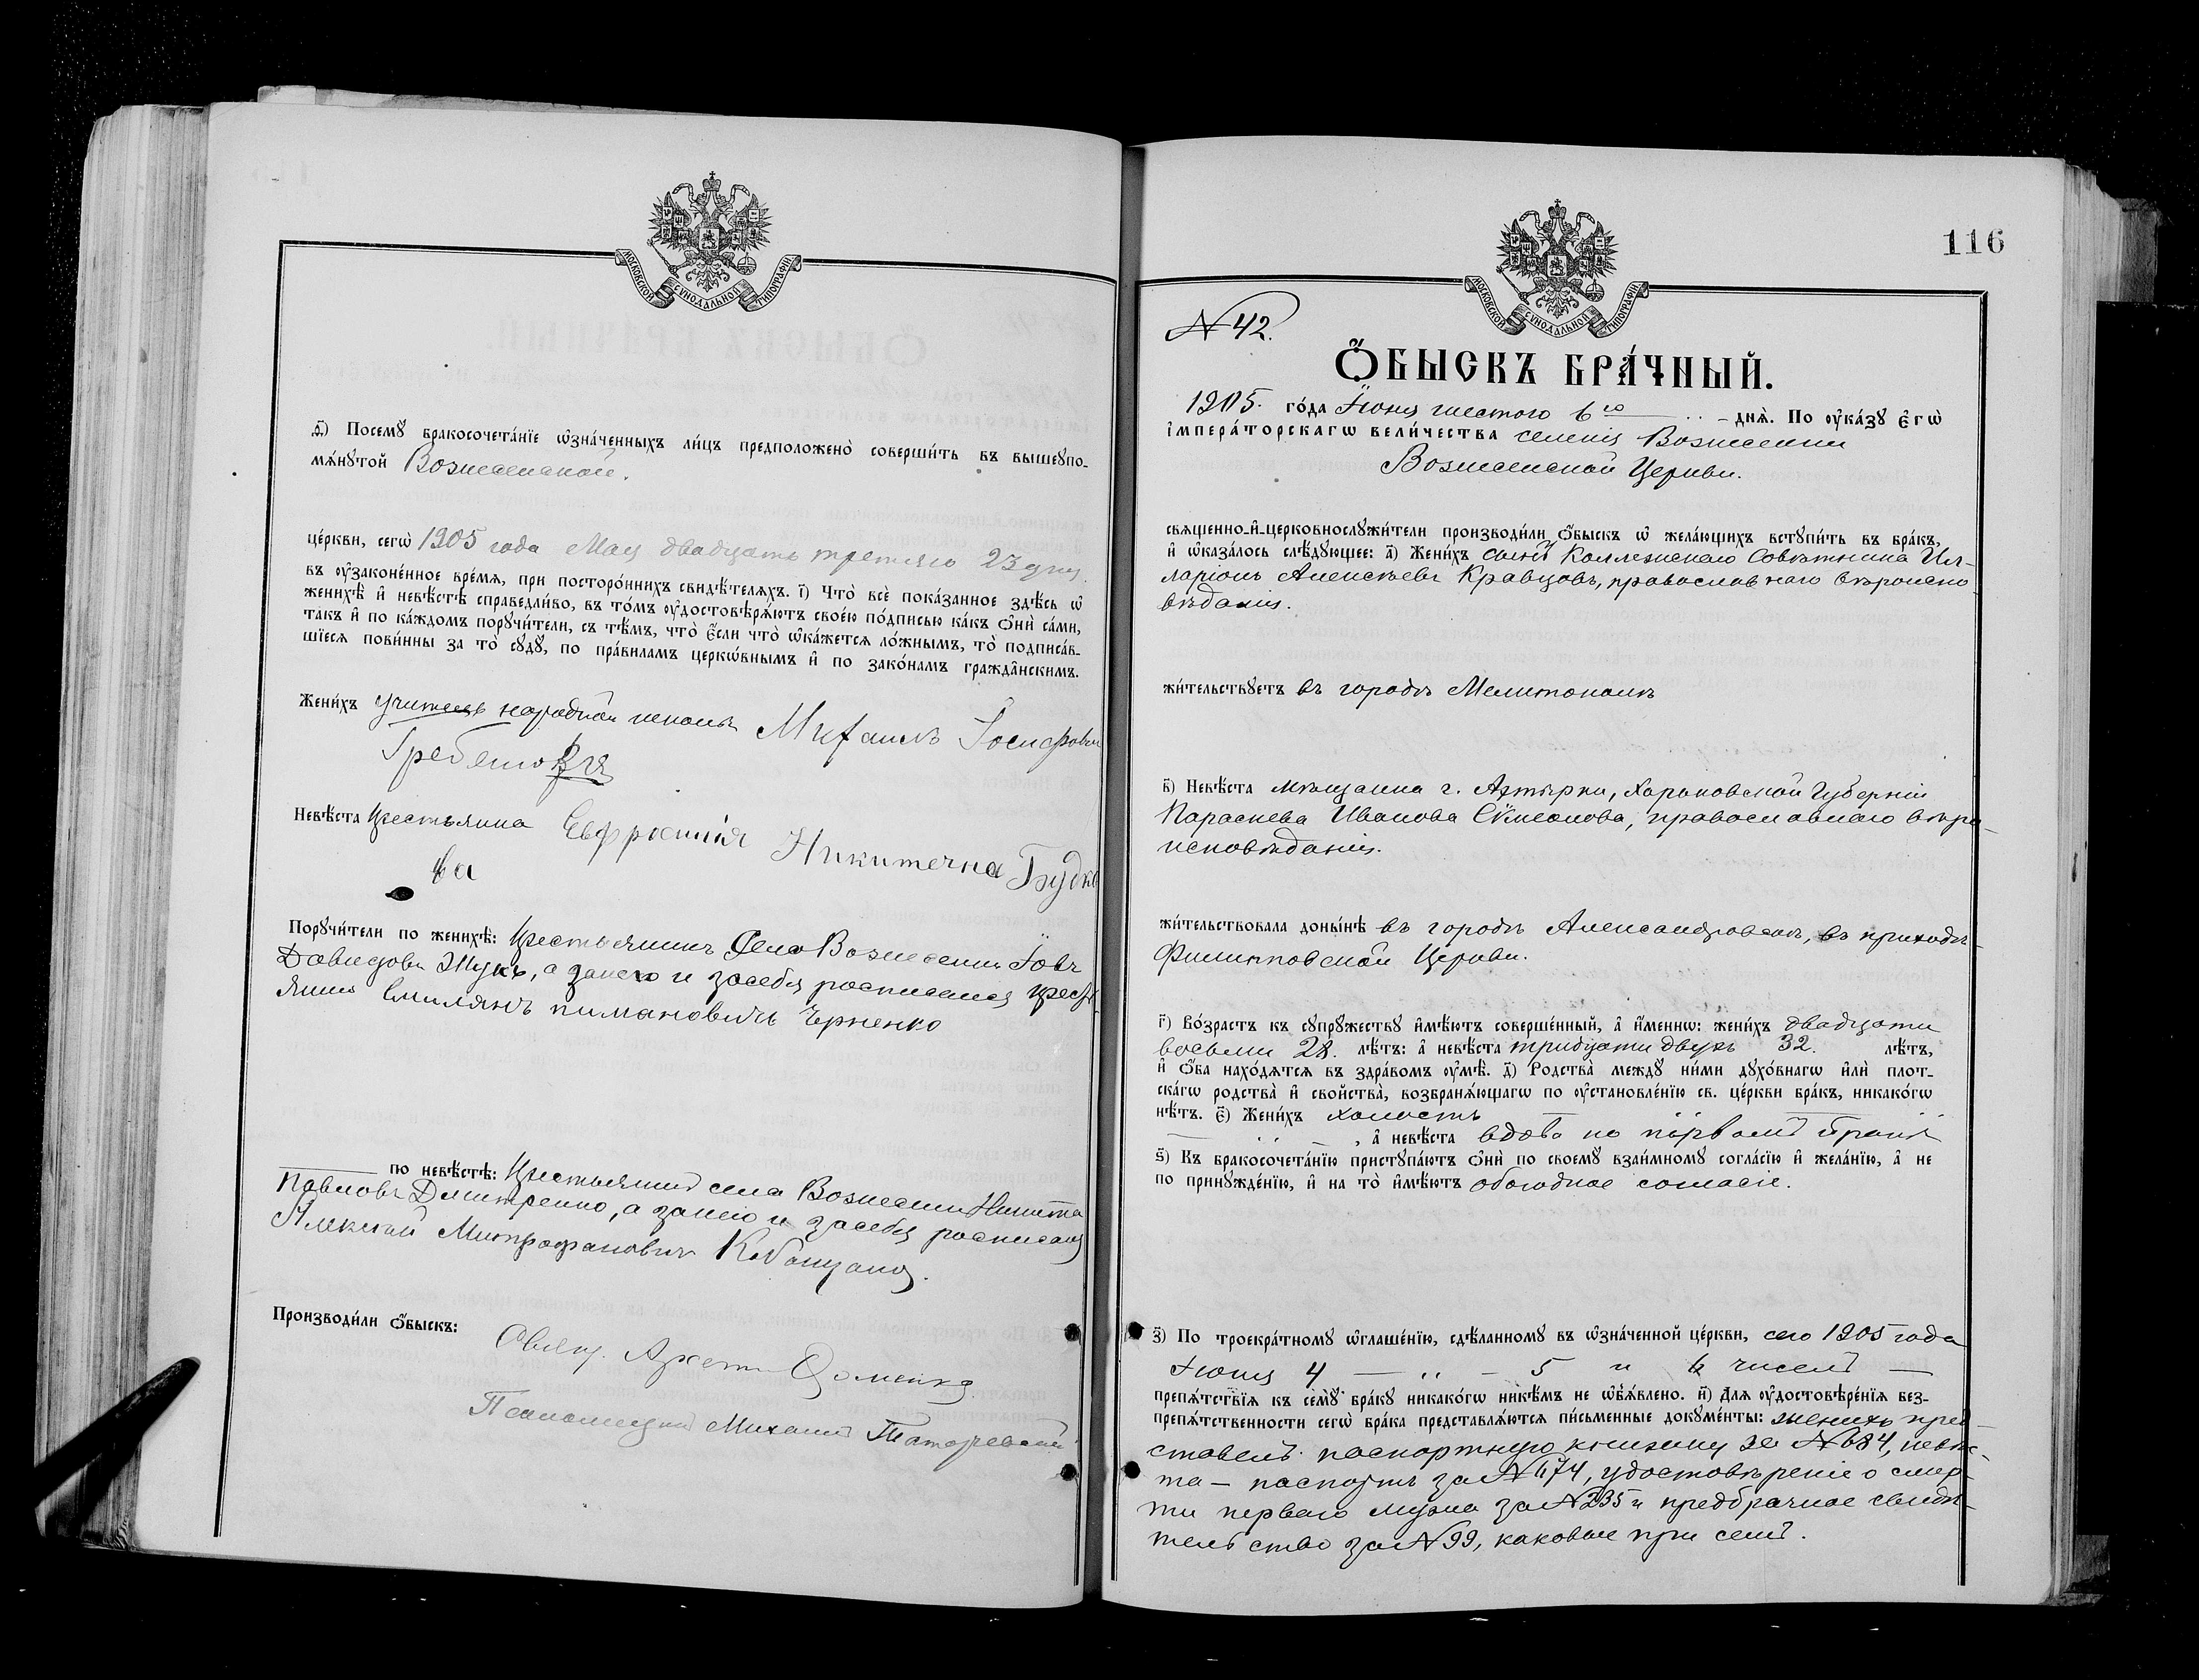 МОСКОВСКОЙ СУНОДАЛЬНОЙ ТИПОГРАФІИ
ѳ҃) Посемꙋ̀ бракосочета́нїе ѡ҆зна́ченныхъ ли́цъ предположено̀ соверши́ть въ вышеꙋпо-
мѧ́нꙋтой Вознесенской.
це́ркви, сегѡ̀ 1905 года Мая двадцать третьяго 23 дня.
въ ᲂу҆законе́нное вре́мѧ, при посторо́ннихъ свидѣ́телѧхъ. і҃) Что̀ всѐ пока́занное здѣ́сь ѡ҆
женихѣ̀ и҆ невѣ́стѣ справедли́во, въ то́мъ ᲂу҆достовѣрѧ́ютъ свое́ю по́дписью ка́къ ѻ҆нѝ са́ми,
та́къ и҆ по ка́ждомъ порꙋчи́тели, съ тѣ́мъ, что̀ є҆́сли что̀ ѡ҆ка́жетсѧ ло́жнымъ, то̀ подписа́в-
шїесѧ пови́нны за то̀ сꙋдꙋ̀, по пра́виламъ церкѡ́внымъ и҆ по зако́намъ гражда̑нскимъ.
Жени́хъ учитель народной школы Михаилъ Іосифовъ
Невѣ́ста Крестьянка Евфросинія Никитечна Будко
ва
Порꙋчи́тели по женихѣ̀: Крестьянинъ Села Вознесенки Іовъ
Давидовъ Жукъ, а занего и засебя росписался крестья
янинъ Емилянъ пимановичъ Черненко
по невѣ́стѣ: Крестьянинъ села Вознесенки Никита
Павловъ Дмитренко, а занего и засебя росписался
Алексѣй Митрофановичъ
Производи́ли ѻ҆́быскъ:
Свящ.
Псаломщикъ Михаилъ
116
МОСКОВСКОЙ СУНОДАЛЬНОЙ ТИПОГРАФІИ
№ 42.
Ѻ҆́БЫСКЪ БРА́ЧНЫЙ.
1905. го́да Іюня шестого 6го днѧ̀. По ᲂу҆ка́зꙋ є҆гѡ̀
і҆мпера́торскагѡ вели́чества селенія Вознесенки
Вознесенской Церкви.
свѧщенно-и҆-церковнослꙋжи́тели производи́ли ѻ҆́быскъ ѡ҆ жела́ющихъ встꙋпи́ть въ бра́къ,
и҆ ѡ҆каза́лось слѣ́дꙋющее: а҃) Жени́хъ сынъ Коллежскаго Совѣтника Ил-
ларіонъ Алексѣевъ Кравцовъ, православнаго вѣроиспо
вѣданія.
жи́тельствꙋетъ въ городѣ Мелитополѣ
в҃) Невѣ́ста мѣщанка г. Ахтырки, Харьковской Губерніи
Параскева Иванова Симеонова, православнаго вѣро-
исповѣданія.
жи́тельствовала доны́нѣ въ городѣ Александровскѣ, въ приходѣ
Филипповской Церкви.
г҃) Во́зрастъ къ сꙋпрꙋ́жествꙋ и҆мѣ́ютъ соверше́нный, а҆ и҆́меннѡ: жени́хъ двадцати
восьми 28. лѣ́тъ: а҆ невѣ́ста тридцати двухъ 32. лѣ́тъ,
и҆ ѻ҆́ба нахо́дѧтсѧ въ здра́вомъ ᲂу҆мѣ̀. д҃) Родства̀ междꙋ̀ ни́ми дꙋхо́внагѡ и҆лѝ плот-
ска́гѡ родства̀ и҆ свойства̀, возбранѧ́ющагѡ по ᲂу҆становле́нїю св. це́ркви бра́къ, никако́гѡ
нѣ́тъ. є҃) Жени́хъ холостъ
, а҆ невѣ́ста вдова по первомъ бракѣ
ѕ҃) Къ бракосочета́нїю пристꙋпа́ютъ ѻ҆нѝ по своемꙋ̀ взаи́мномꙋ согла́сїю и҆ жела́нїю, а҆ не
по принꙋжде́нїю, и҆ на то̀ и҆мѣ́ютъ обоюдное согласіе.
з҃) По троекра́тномꙋ ѡ҆глаше́нїю, сдѣ́ланномꙋ въ ѡ҆зна́ченной це́ркви, сего 1905 года
Іюня 4 — „ — 5 и 6 чиселъ —
препѧ́тствїѧ къ семꙋ̀ бра́кꙋ никако́гѡ никѣ́мъ не ѡ҆б̾ѧ́влено. и҃) Длѧ ᲂу҆достовѣре́нїѧ без-
препѧ́тственности сегѡ̀ бра́ка представлѧ́ютсѧ пи́сьменные докꙋме́нты: женихъ пред-
ставелъ паспортную книжку за № 684, невѣс-
та — паспортъ за № 674, удостовѣреніе о смер-
ти перваго мужа за № 235 и предбрачное свидѣ-
тельство за № 99, каковые при семъ.